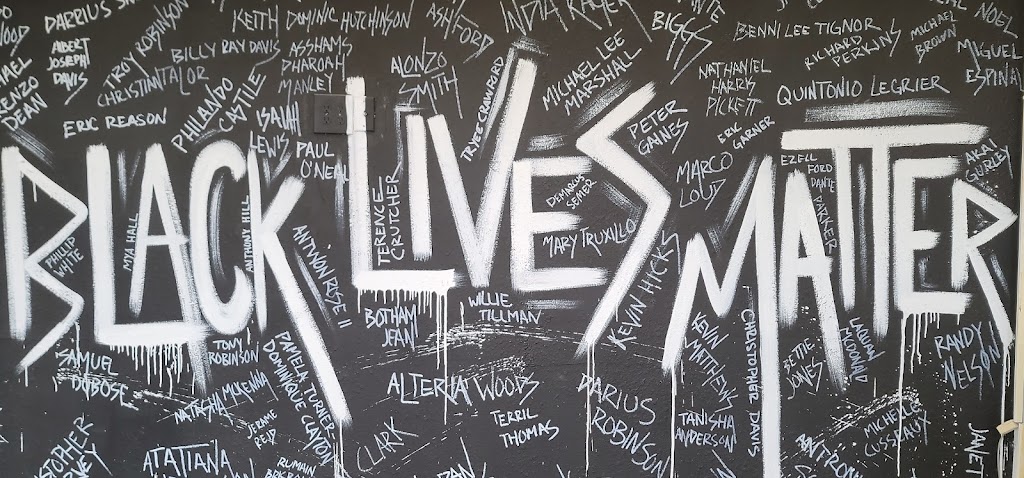 DARRIUS
KEITH
DOMINIC HUTCHINSON
ASHFORD
INDIA KAGER
BIGGS
BENNI LEE TIGNOR
NOEL
ALBERT
JOSEPH
DAVIS
TROY ROBINSON
BILLY RAY DAVIS
ASSHAMS
PHAROAH
MANLEY
ALONZO
SMITH
MICHAEL LEE
MARSHALL
RICHARD
PERKINS
MICHAEL
BROWN
MIGUEL
ESPINAL
DEAN
CHRISTIAN TALOR
PHILANDO
CASTILE
TYREE CRAWFORD
NATHANIEL
HARRIS
PICKETT
QUINTONIO LEGRIER
ERIC REASON
ISAIAH
LEWIS
PAUL
O'NEAL
PETER
GAINES
ERIC
GARNER
MARCO
LOUD
EZELL
FORD
DANTE
PARKER
AKAI
GURLEY
BLACK LIVES MATTER
PHILLIP
WHITE
MYA HALL
ANTHONY HILL
ANTWON ROSE II
TERENCE
CRUTCHER
DEMARCUS
SEMER
MARY TRUXILLO
KEVIN HICKS
BOTHAM
JEAN
WILLIE
TILLMAN
SAMUEL
DUBOSE
TOM
ROBINSON
NATASHA MCKENNA
PAMELA TURNER
DOMINIQUE CLAYTON
KEVIN
MATTHEWS
CHRISTOPHER DAVIS
BETTIE
JONES
LAQUAN
MCDONALD
RANDY
NELSON
JEROME
REID
ALTERIA WOODS
TERRIL
THOMAS
DARIUS
ROBINSON
TANISHA
ANDERSON
MICHELLE
CUSSEAUX
CLARK
ATATIANA
RUMAIN
JANET